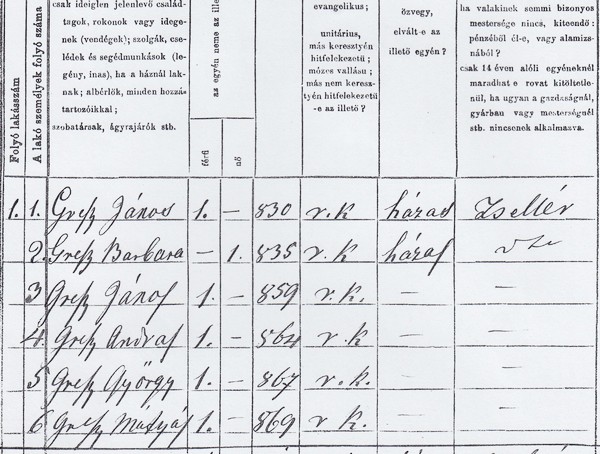 csak ideiglen jelenlevő család-
tagok, rokonok vagy idege-
nek (vendégek); szolgák, cse-
lédek és segédmunkások (le-
gény, inas), ha a háznál lak-
nak; albérlők, minden hozzá-
tartozóikkal;
szobatársak, ágyrajárók stb.
Folyó lakásszám
A lakó személyek folyó száma
az egyén neme az ille
férfi
nő
evangelikus;
unitárius,
más keresztyén
hitfelekezetü;
mózes vallásu;
más nem keresz-
tyén hitfelekezetü
-e az illető?
özvegy,
elvált-e az
illető egyén?
ha valakinek semmi bizonyos
mestersége nincs, kiteendő:
pénzéből él-e, vagy alamizs-
nából?
csak 14 éven alóli egyéneknél
maradhat e rovat kitöltetle-
nül, ha ugyan a gazdaságnál,
gyárban vagy mesterségnél
stb. nincsenek alkalmazva.
1. 1. Greſz János 1. — 830 r. k házas Zsellér
2. Greſz Barbara — 1. 835 r. k házas
3 Greſz János 1. — 859 r. k. — —
4. Greſz Andras 1. — 864 r. k — —
5 Greſz György 1. — 867 r. k. — —
6 Greſz Mátyás 1. — 869 r k. — —